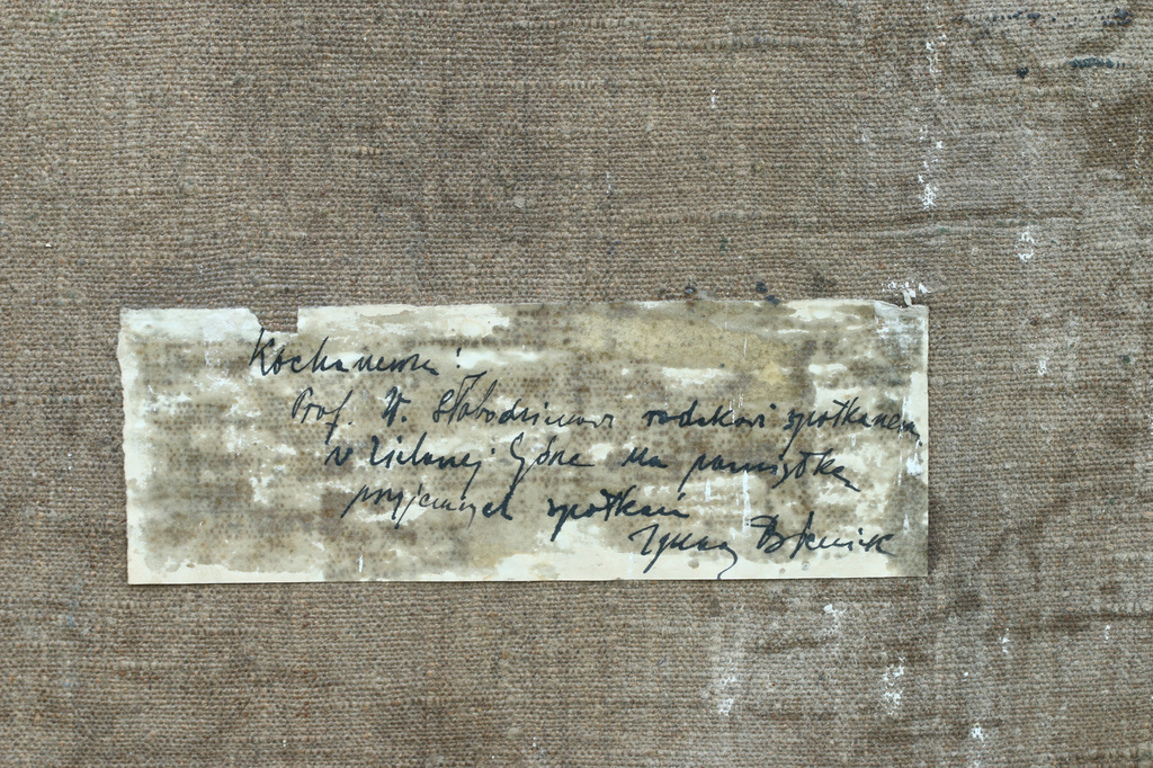 Kochanemu!
Prof. W. Słobodzianowi rodakowi spotkanemu
w Zielonej Górze na pamiątkę
przyjemnych spotkań
Ignacy Bieniek